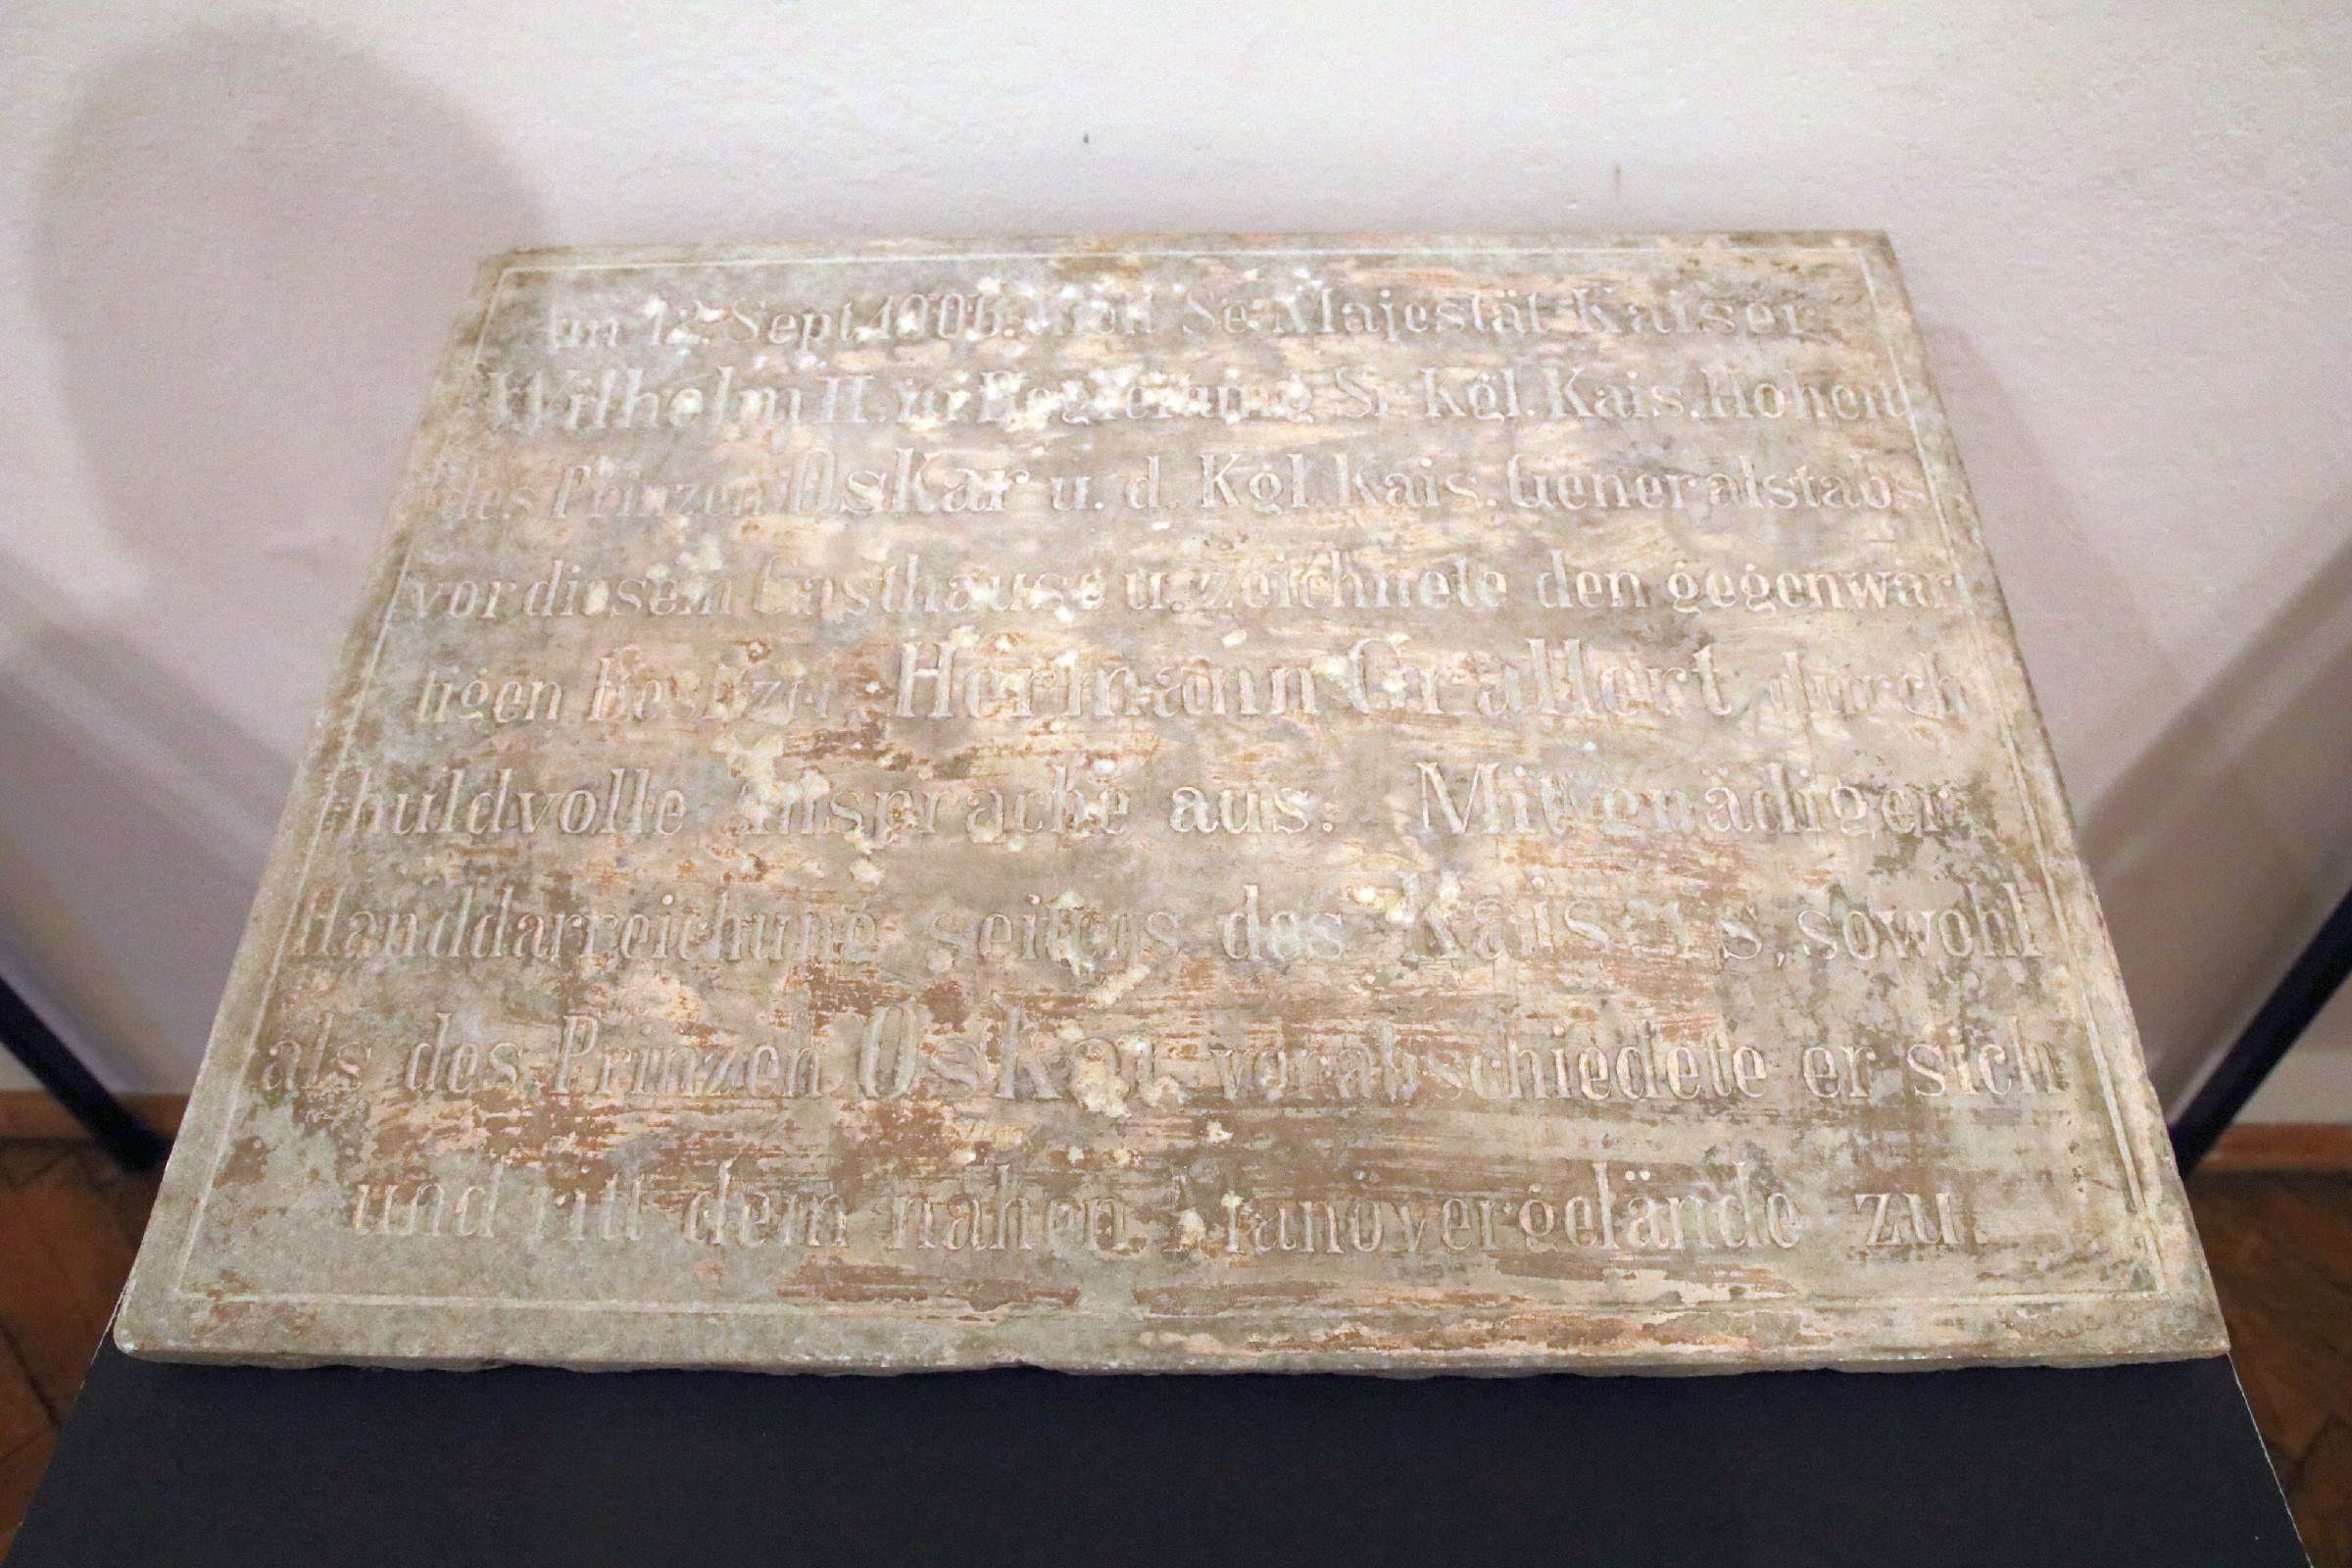 Am 12. Sept. 1906. hielt Se. Majestät Kaiser
Wilhelm II. in Begleitung Sr. Kgl. Kais. Hoheit
des Prinzen Oskar u. d. Kgl. kais. Generalstabs
vor diesem Gasthause u. zeichnete den gegenwär
tigen Besitzer Hermann Grallert durch
huldvolle Ansprache aus. Mit gnädiger
Handdarreichung seitens des Kaisers, sowohl
als des Prinzen Oskar verabschiedete er sich
und ritt dem nahen Manövergelände zu.